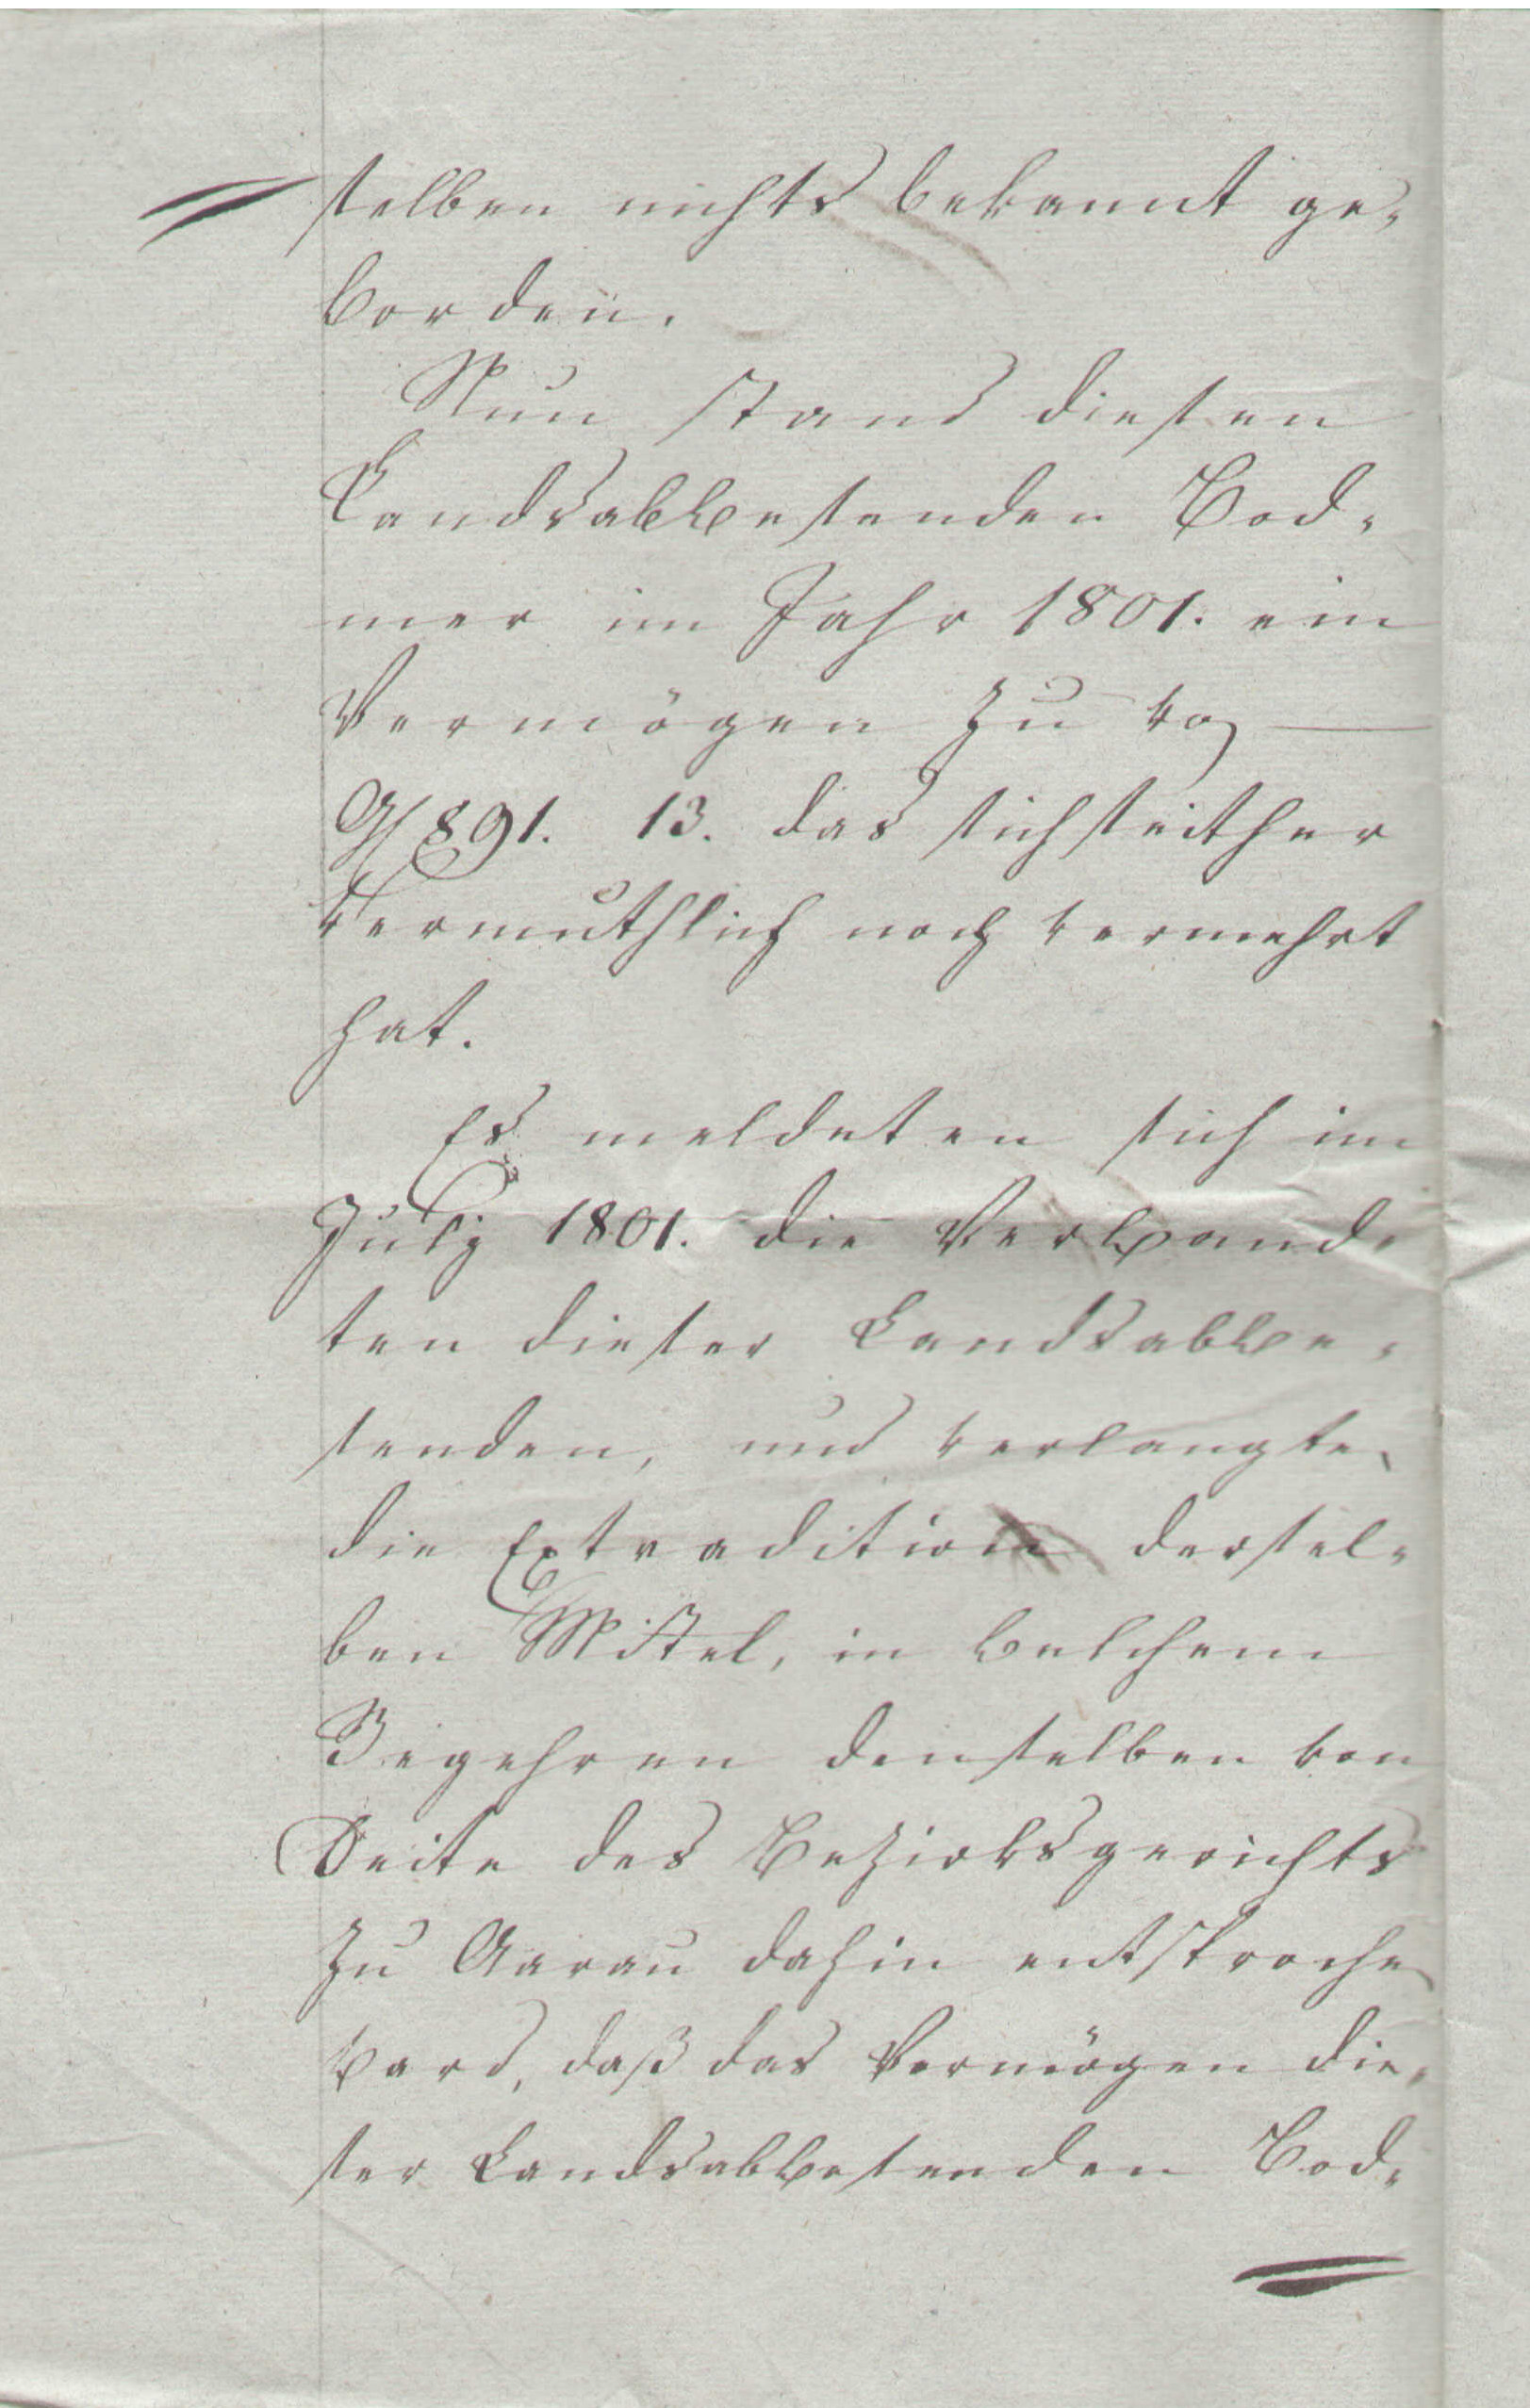 selben nichts bekannt ge-
worden.
Nun stand diesen
Landsabwesenden Bod-
mer im Jahr 1801. ein
Vermögen zu von
Gl 891. 13. das sich seither
vermuthlich noch vermehrt
hat.
Es meldeten sich im
July 1801. die Verwand-
ten dieser Landsabwe-
senden, und verlangten
die Extradition dersel-
ben Mittel, in welchem
Begehren denselben von
Seite des Bezirksgerichts
zu Aarau dahin entsprochen
ward, daß das Vermögen die-
ser Landsabwesenden Bod-